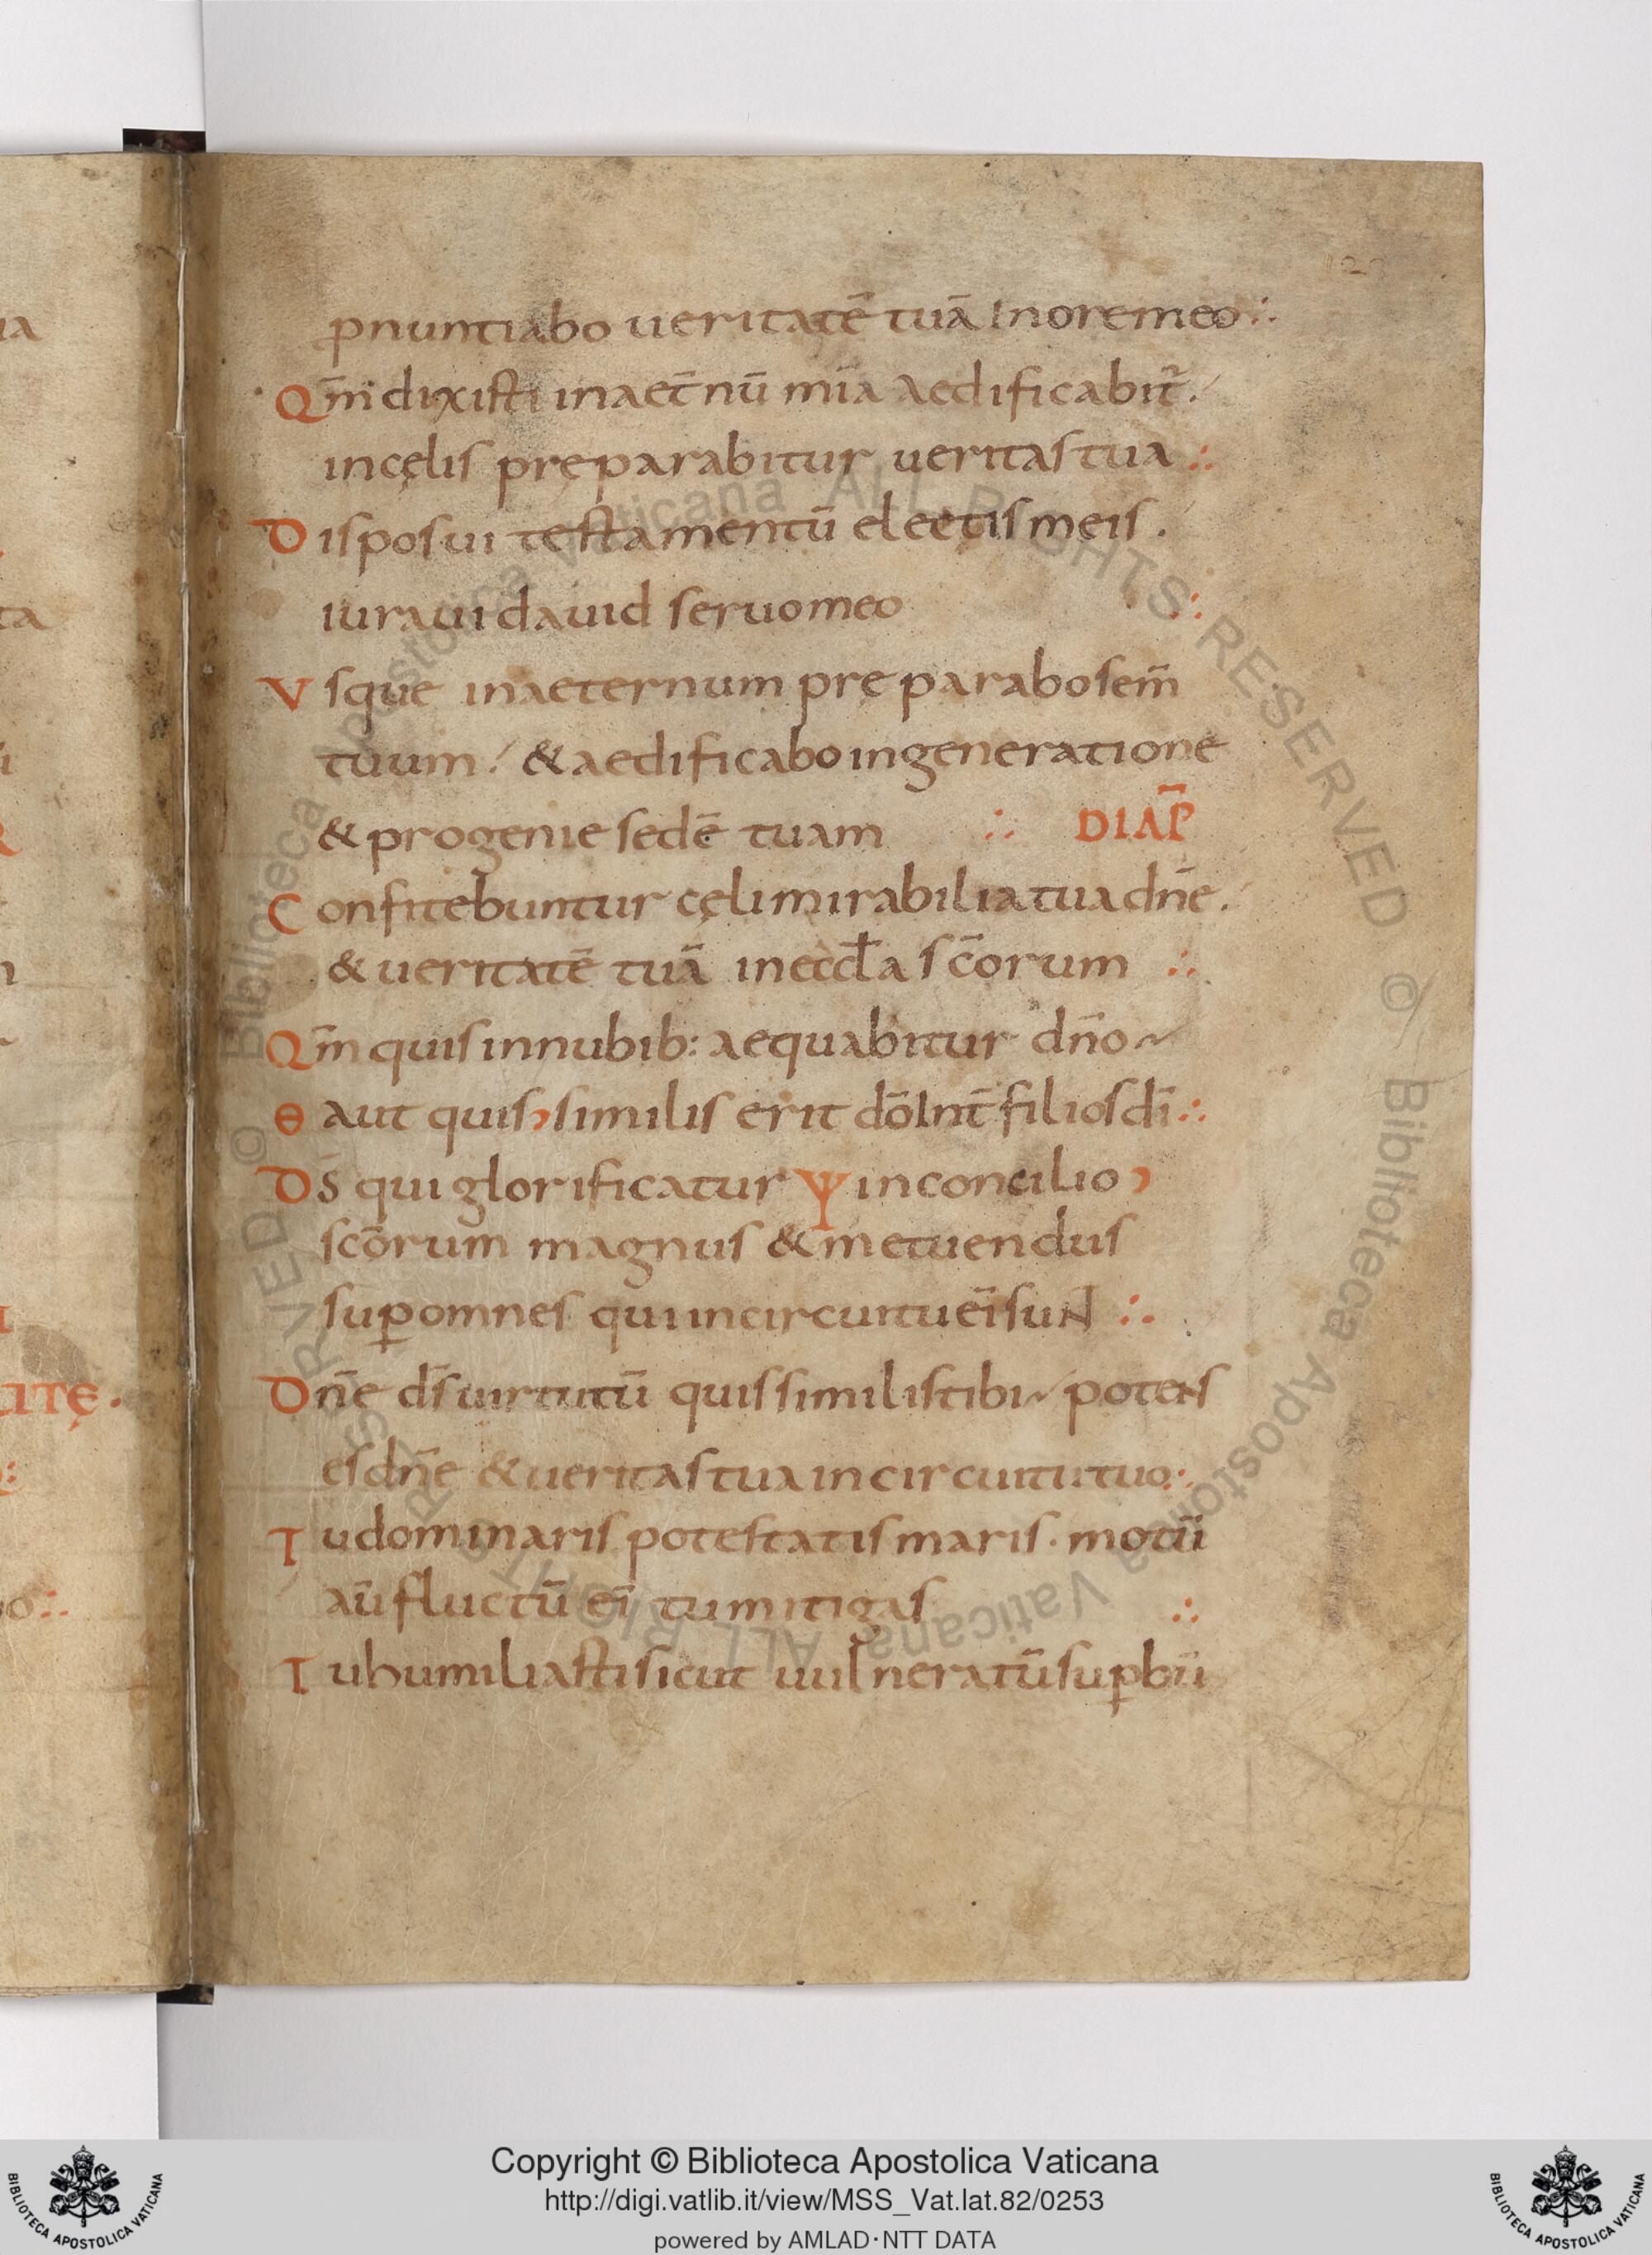 ꝓnuntiabo ueritatē tuā Inoremeo
Qm̄ dixisti inaet̄nū mı̄a aedificabit᷑.
incęlis pręparabitur ueritas tua
Disposui testamentū electis meis.
iuraui dauid seruomeo
Vsque inaeternum pręparabo sem̄
tuum. & aedificabo ingeneratione
& progenie sedē tuam DIAP̄
Confitebuntur cęli mirabilia tua dn̄e.
& ueritatē tuā inecc̄la sc̄orum
Qm̄ quis innubib: aequabitur dn̄o
aut quis similis erit dō Int̄ filios dī
Ds̄ qui glorificatur Ψ inconcilio
scōrum magnus & metuendus
suꝑ omnes qui incircuitu eī suN
Dn̄e ds̄ uirtutū quis similis tibi potens
es dn̄e & ueritas tua incircuitu tuo
Tu dominaris potestatis maris. motū
aū fluctū eī tu mitigas
Tu humiliasti sicut uulneratū suꝑbū
Copyright © Biblioteca Apostolica Vaticana
http://digi.vatlib.it/view/MSS_Vat.lat.82/0253
powered by AMLAD·NTT DATA
BIBLIOTECA APOSTOLICA VATICANA
BIBLIOTECA APOSTOLICA VATICANA